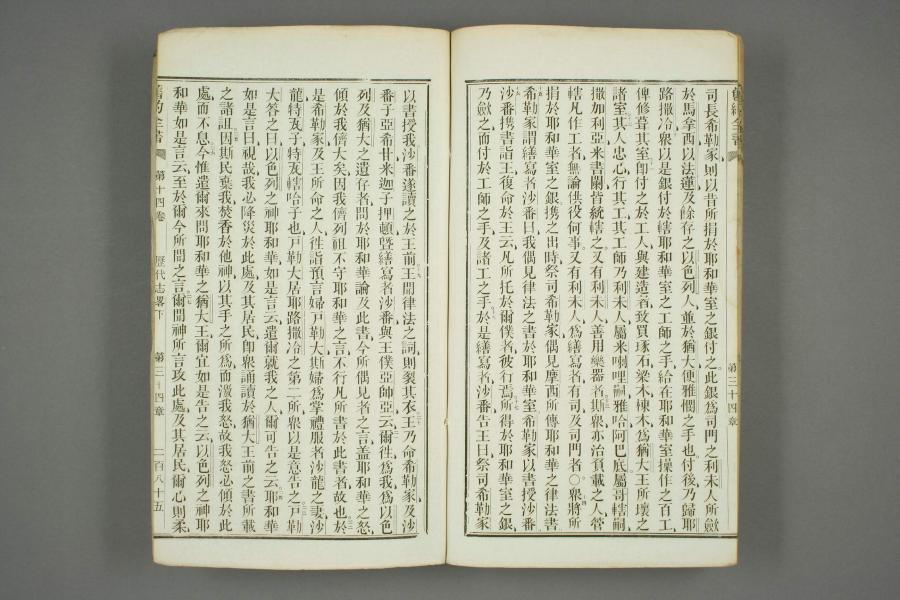 司長希勒家則以昔所捐於耶和華室之銀付之此銀爲司門之利未人所斂
於馬拿西以法蓮及餘存之以色列人並於猶大便雅憫之手也付後乃歸耶
路撒冷衆以是銀付於轄耶和華室之工師之手給在耶和華室操作之百工
俾修葺其室卽付之於工人與建造者致買琢石梁木棟木爲猶大王所壞之
諸室其人忠心行其工其工師乃利未人屬米喇哩嗣雅哈阿巴底屬哥轄嗣
撒加利亞米書闌皆統轄之又有利未人善用樂器者斯衆亦治負載之人管
轄凡作工者無論供役何事又有利未人爲繕寫者有司及司門者○衆將所
捐於耶和華室之銀攜之出時祭司希勒家偶見摩西所傳耶和華之律法書
希勒家謂繕寫者沙番曰我偶見律法之書於耶和華室希勒家以書授沙番
沙番攜書詣王復命於王云凡所托於爾僕者彼行焉所得於耶和華室之銀
乃斂之而付於工師之手及諸工之手於是繕寫者沙番告王曰祭司希勒家
第三十四章
以書授我沙番遂讀之於王前王聞律法之詞則裂其衣王乃命希勒家及沙
番子亞希甘米迦子押頓曁繕寫者沙番與王僕亞師亞云爾徃爲我爲以色
列及猶大之遺存者問於耶和華論及此書今所偶見者之言蓋耶和華之怒
傾於我儕大矣因我儕列祖不守耶和華之言不行凡所書於此書者故也於
是希勒家及王所命之人徃詣預言婦戸勒大斯婦爲掌禮服者沙龍之妻沙
龍特瓦子特瓦轄哈子也戸勒大居耶路撒冷之第二所衆以是意告之戸勒
大答之曰以色列之神耶和華如是言云遣爾就我之人爾可告之云耶和華
如是言曰視哉我必降災於此處及其居民卽衆誦讀於猶大王前之書所載
之諸詛因斯民棄我焚香於他神以其手之所爲而激我怒故我怒必傾於此
處而不息今惟遣爾來問耶和華之猶大王爾宜如是告之云以色列之神耶
和華如是言云至於爾今所聞之言爾聞神所言攻此處及其居民爾心則柔
舊約全書 第十四卷 歷代志畧下 第三十四章 二百八十五